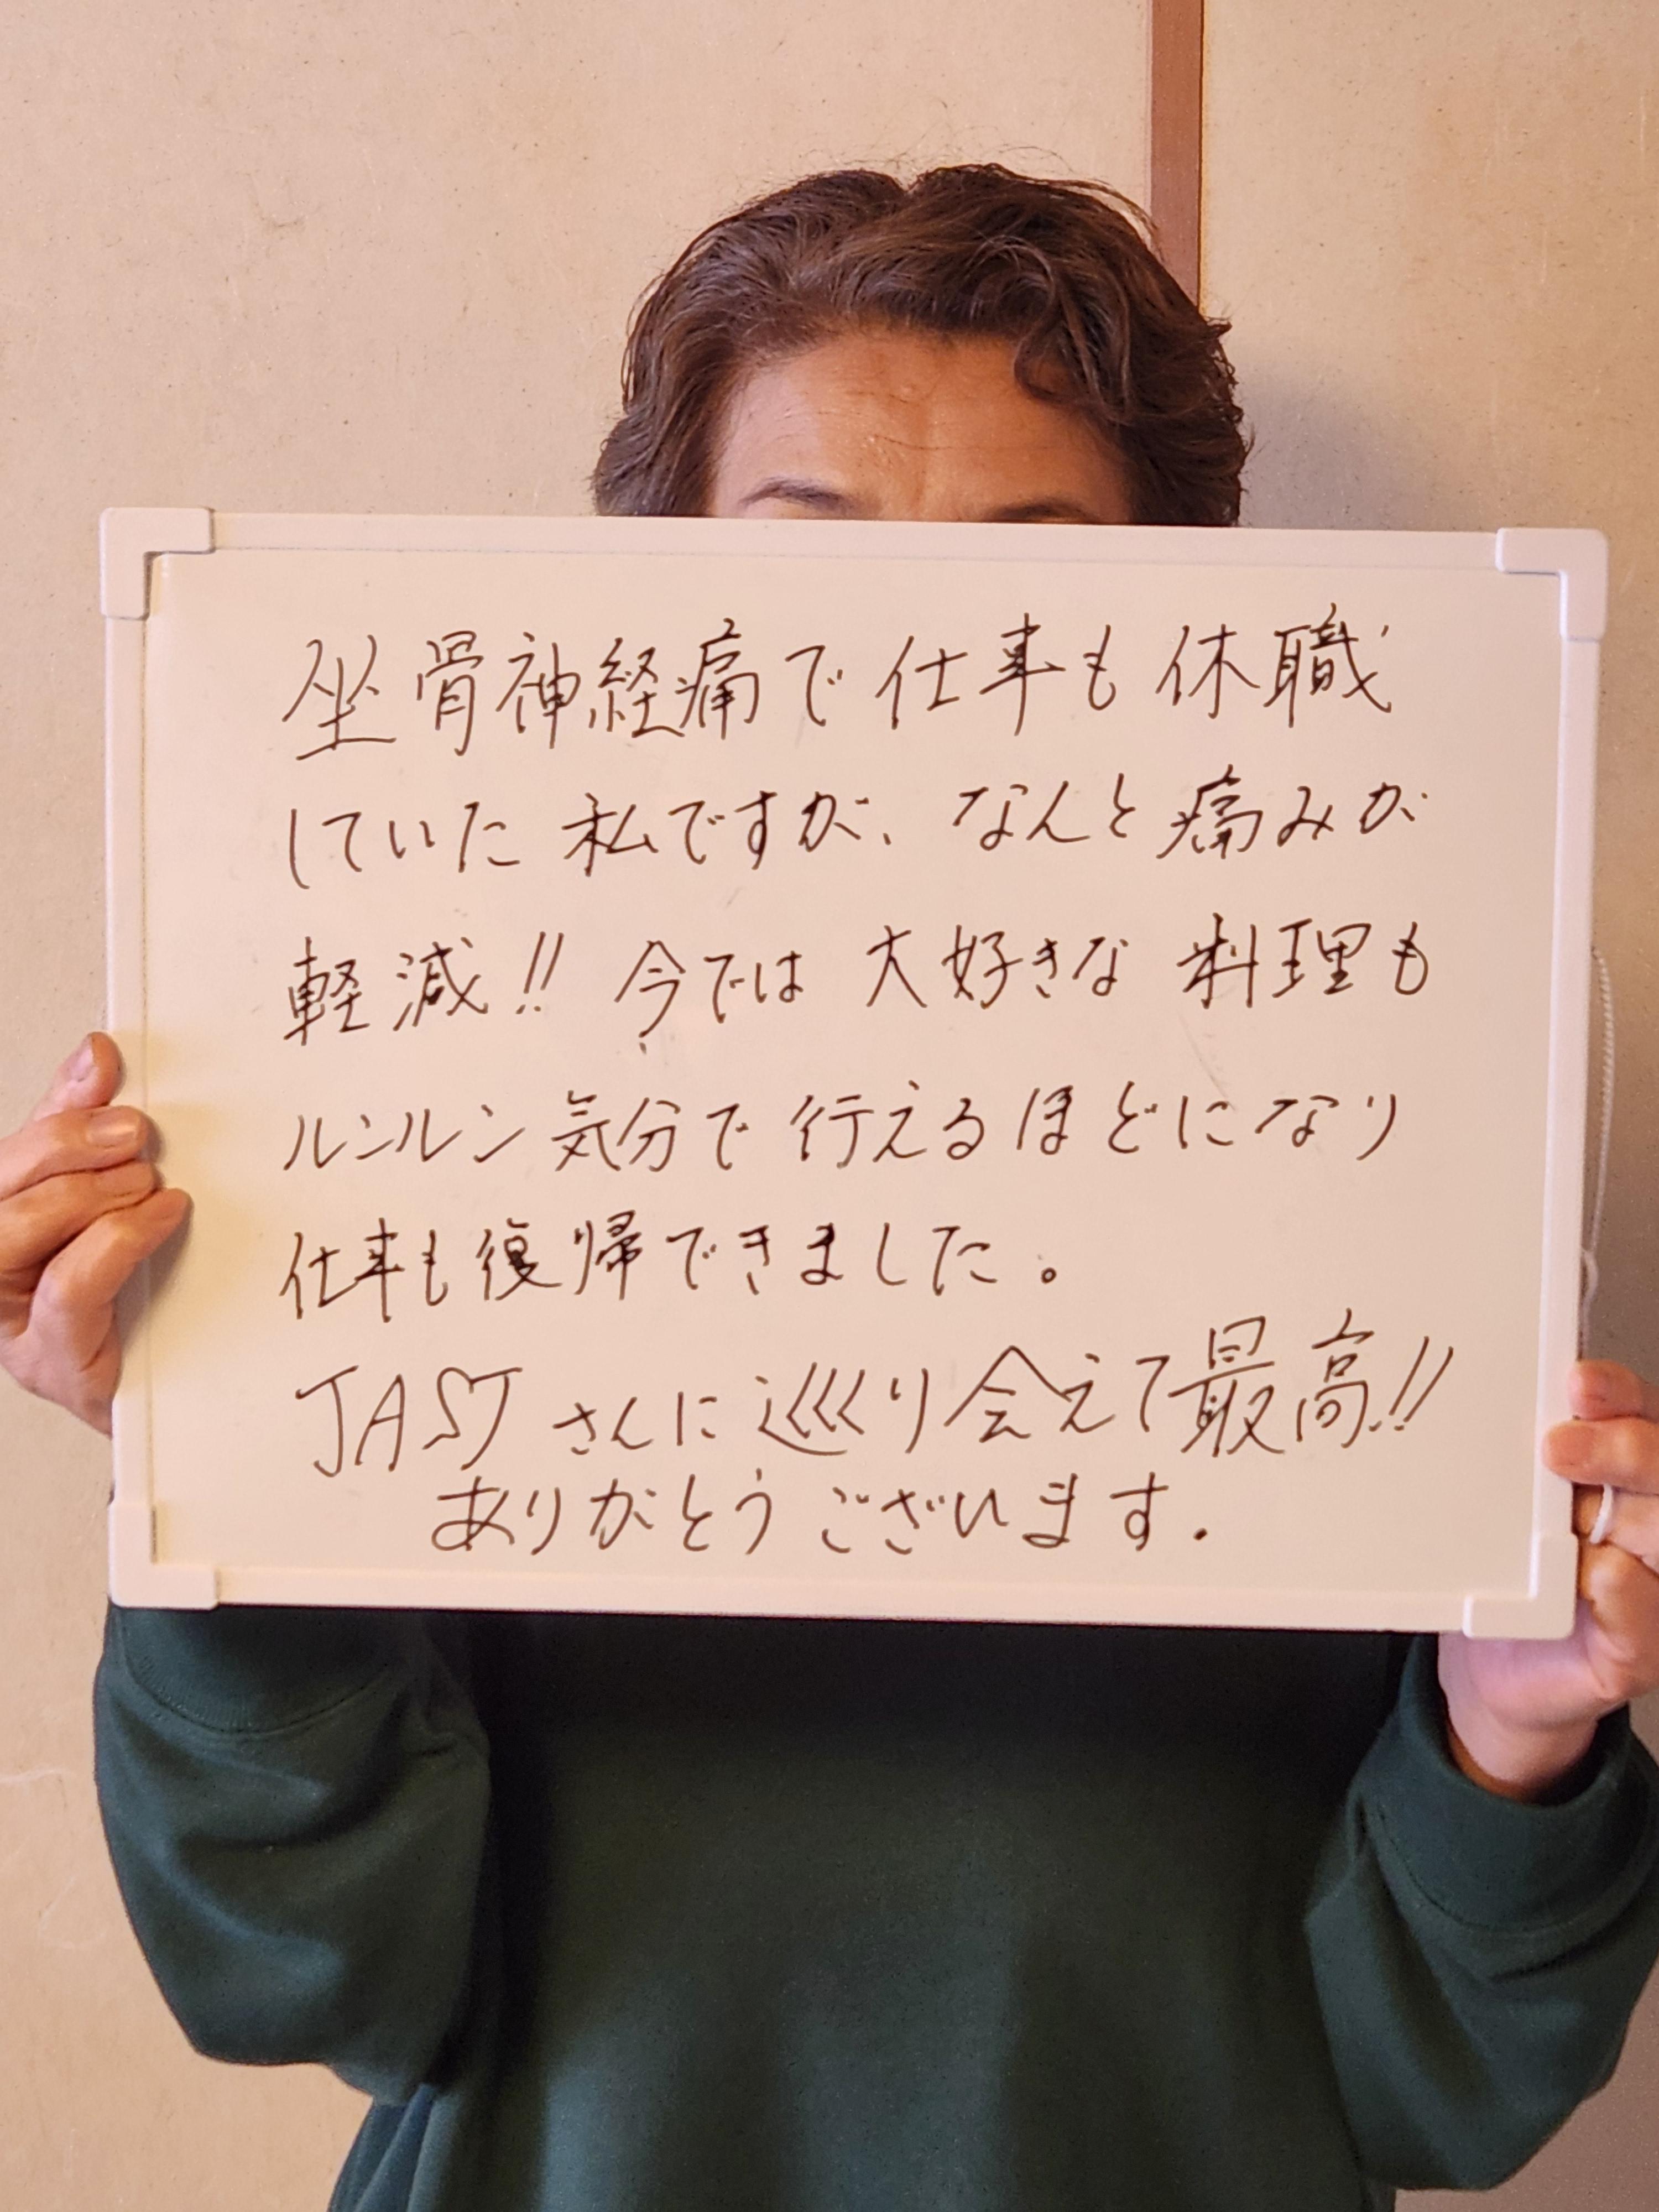 坐骨神経痛で仕事も休職
していた私ですが、なんと痛みが
軽減!! 今では大好きな料理も
ルンルン気分で行えるほどになり
仕事も復帰できました。
JASTさんに巡り会えて最高!!
ありがとうございます.